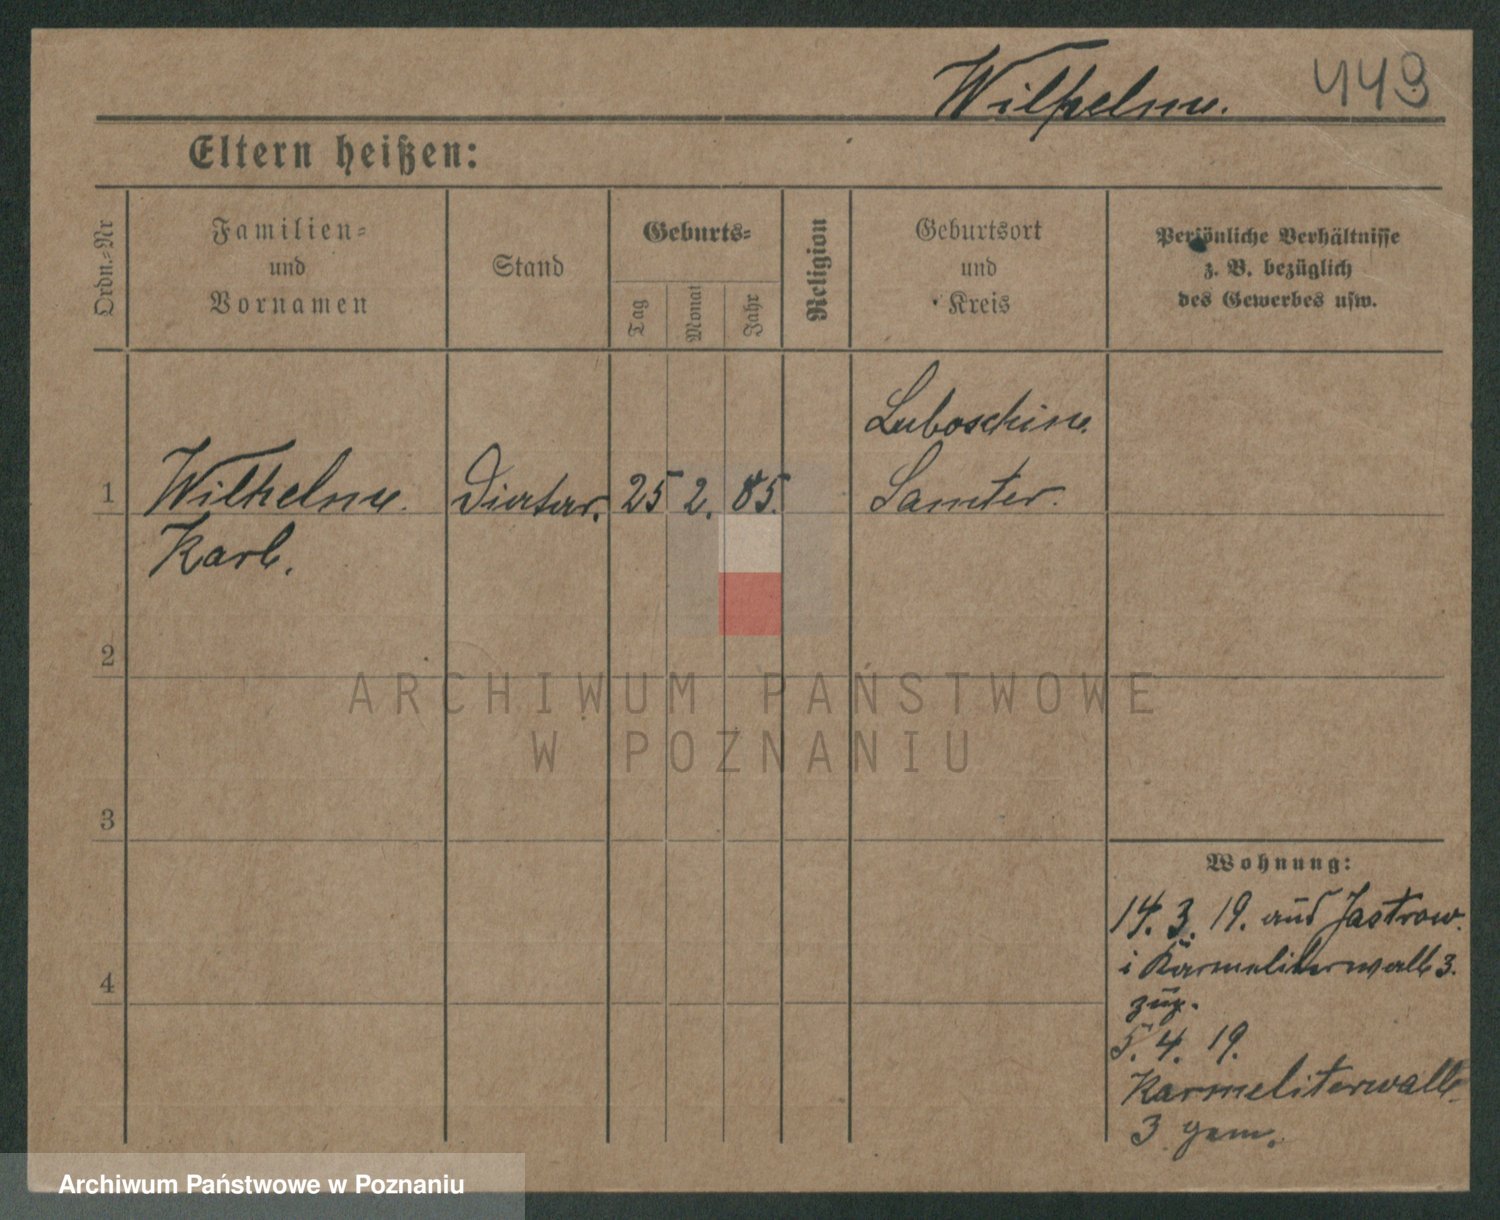 Wilhelm. 449
Eltern heißen:
Ordn.-Nr
Familien-
und
Vornamen
Stand
Geburts-
Tag
Monat
Jahr
Religion
Geburtsort
und
Kreis
Persönliche Verhältnisse
z. B. bezüglich
des Gewerbes usw.
Luboschin.
1 Wilhelm. 25 2. 85. Samter.
Karl.
2
3
4
Wohnung:
14. 3. 19. aus Jastrow.
i Karmeliterwall 3.
zug.
5. 4. 19.
Karmeliterwall
3 gem.
ARCHIWUM PAŃSTWOWE
W POZNANIU
Archiwum Państwowe w Poznaniu